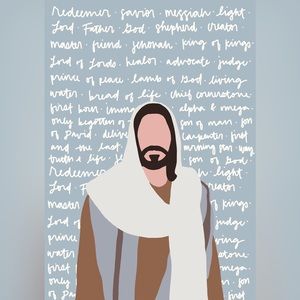 redeemer · savior · messiah · light ·
Lord · Father · God · shepherd · creator ·
master · friend · jehovah · king of kings ·
Lord of Lords · healer · advocate · judge ·
prince of peace · lamb of God · living
water · bread of life · chief cornerstone ·
first born · alpha & omega ·
only begotten of son of man · son
of David · carpenter · first
and the last · morning star · way
truth & life · son of God ·
redeemer · light ·
Lord · creator ·
master ·
Lord of judge ·
prince
water
first omega ·
only son
of David